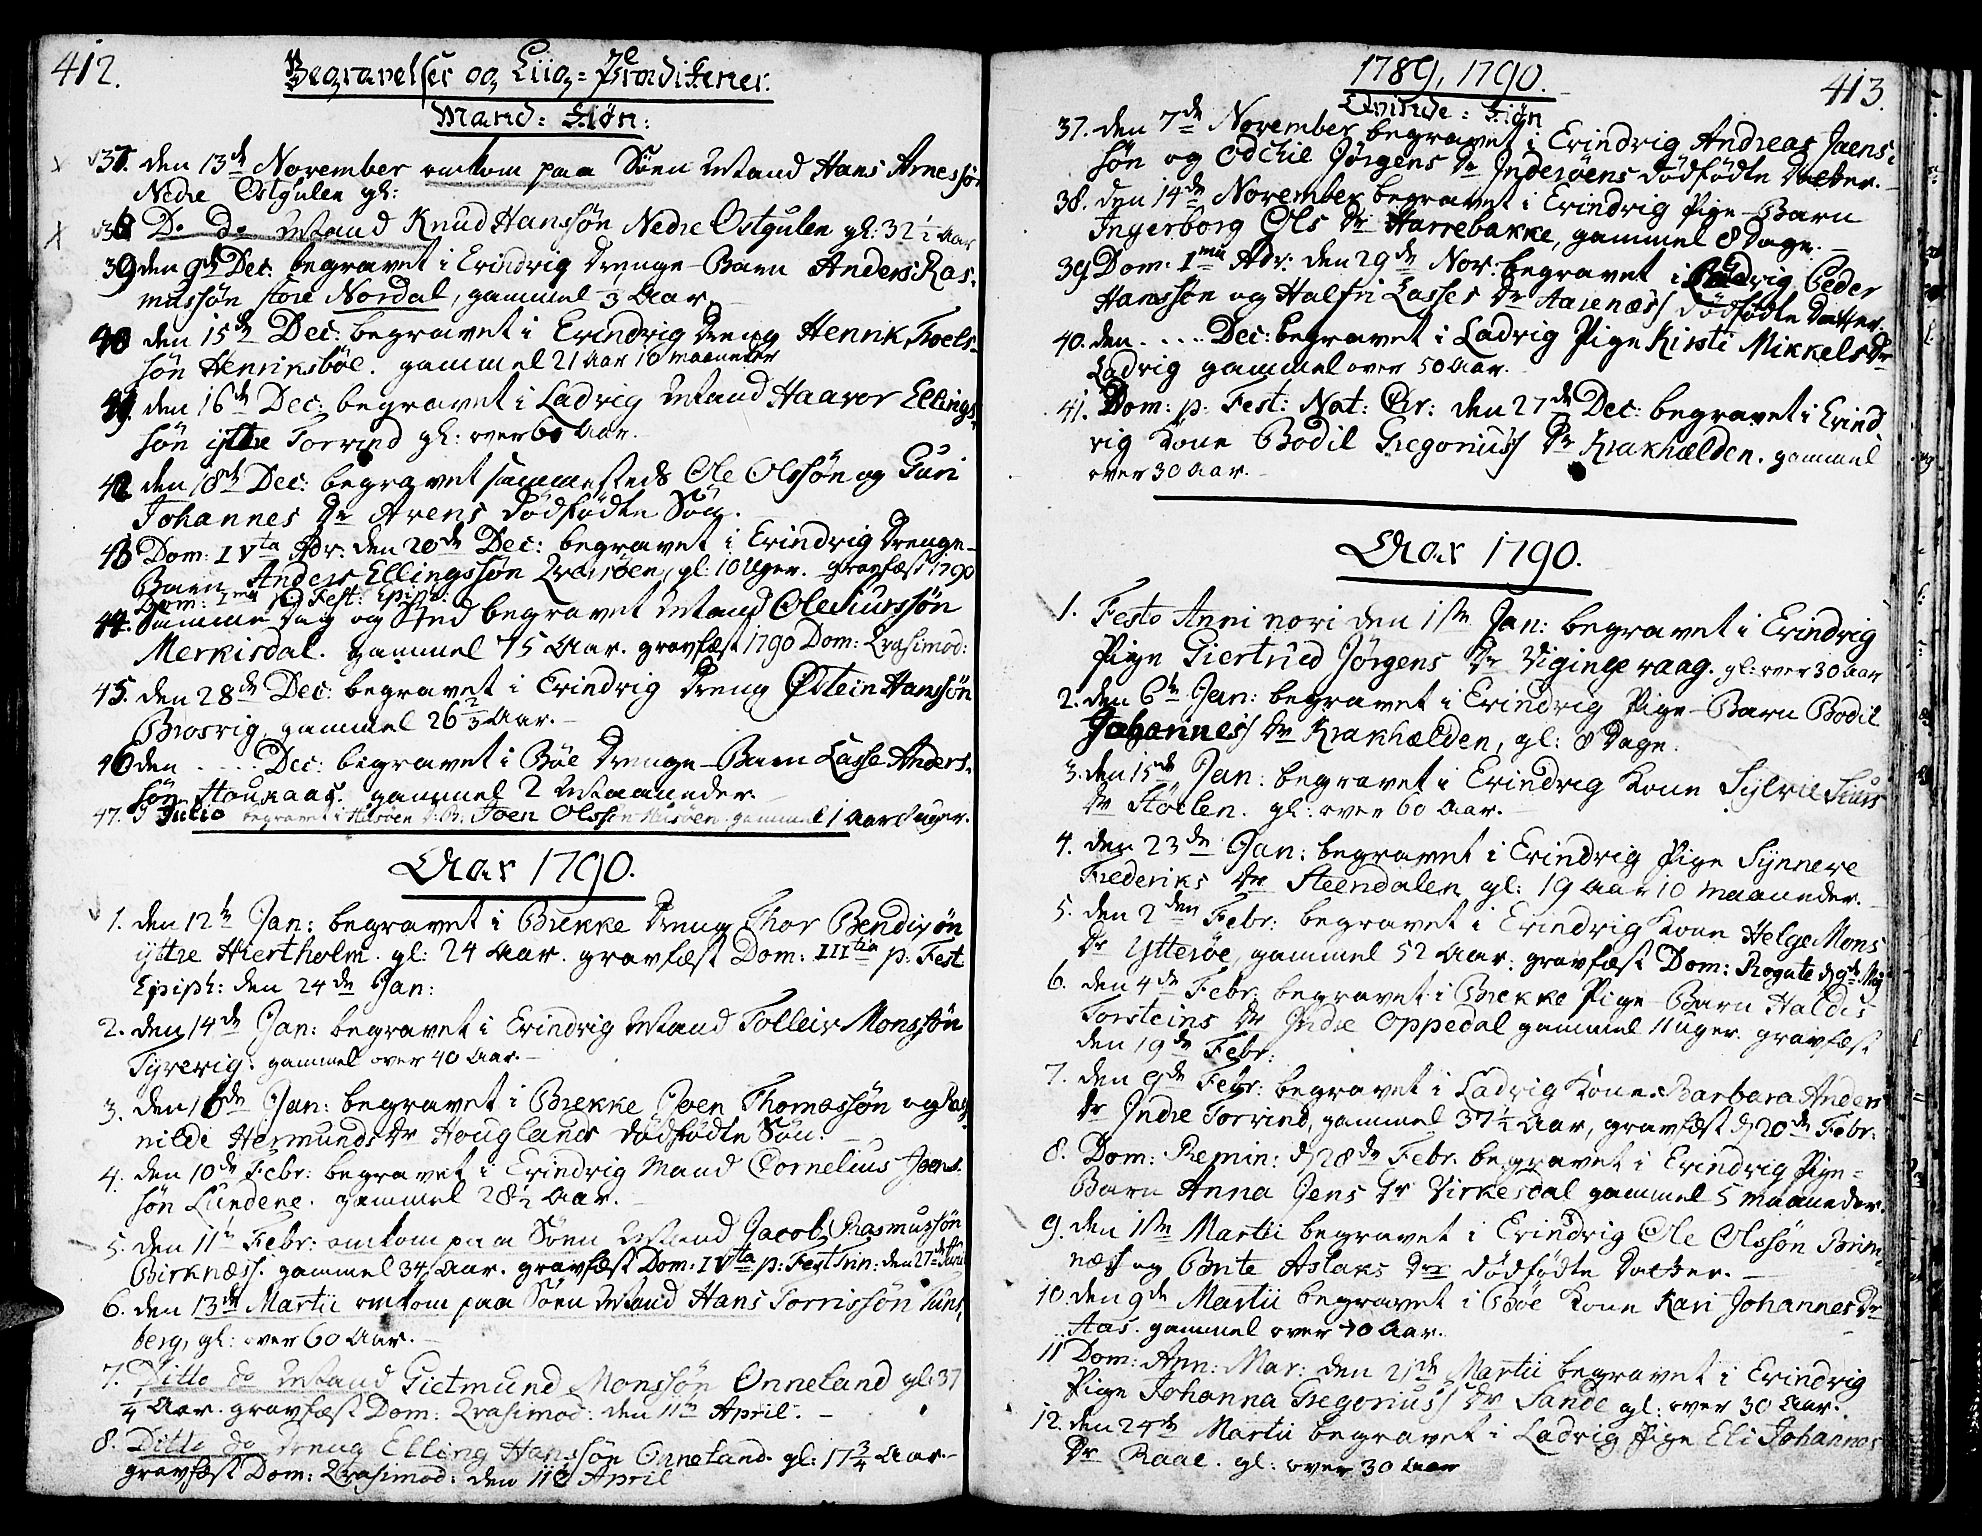 412.
Begravelser og Liig-Prædikener.
Mand-Kiøn:
37. den 13de November omkom paa Søen Mand Hans Arnessøn
Nedre Østgulen gl:
38. Do do Mand Knud Hanssøn Nedre Ostgulen gl: 32 1/2 Aar
39 den 9de Dec: begravet i Evindvig Drenge-Barn Anders Ras-
mussøn store Nordal, gammel 1/3 Aar.
40 den 15de Dec: begravet i Evindvig Dreng Henrik Troels-
søn Henriksbøe. gammel 21 Aar 10 maaneder
41. den 16de Dec: begravet i Ladvig Mand Haavor Ellings-
søn yttre Torvind gl: over 60 Aar.
42 den 18de Dec: begravet sammesteds Ole Olssøn og Guri
Johannes Dr Arens dødfødte Søn.
43 Dom: IVta Adv: den 20de Dec: begravet i Evindvig Drenge-
Barn Anders Ellingssøn Qversøen, gl: 10 Uger. gravfæst 1790
Dom: Ima p Fest: Epiph:
44. Samme Dag og Sted begravet Mand Ole Siurssøn
Merkisdal. gammel 75 Aar. gravfæst 1790 Dom: Qvasimod:
45. den 28de Dec: begravet i Evindvig Dreng Østein Hanssøn
Brosvig, gammel 26 2/3 Aar.
46 den .... Dec: begravet i Bøe Drenge-Barn Lasse Anders-
søn Houkaas. gammel 2 Maaneder.
47. Julio begravet i Joen Olssøn gammel 1 Aar uger.
Aar 1790.
1. den 12te Jan: begravet i Brekke Dreng Thor Bendixøn
yttre Hiertholm. gl: 24 Aar. gravfæst Dom: IIItia p: Fest
Epiph: den 24de Jan:
2. den 14de Jan: begravet i Evindvig Mand Tolleiv Monssøn
Tyvevig: gammel over 40 Aar.
3. den 16de Jan: begravet i Brekke Joen Thomassøn og Rag-
nilde Hermunds Dr Houglands dødfødte Søn.
4. den 10de Febr: begravet i Evindvig Mand Cornelius Joens-
søn Lundene. gammel 28 1/2 Aar.
5. den 11te Febr: omkom paa Søen Mand Jacob Rasmussøn
Birknæss. gammel 34 Aar. gravfæst Dom: IVta p: Fest Trin: den 27de Junii
6. den 13de Martii omkom paa Søen Mand Hans Torrissøn Tuns-
berg, gl: over 60 Aar.
7. Ditto do Mand Gietmund Monssøn Onneland gl: 37
1/4 Aar. gravfæst Dom: Qvasimod: den 11te April.
8. Ditto do Dreng Elling Hanssøn Onneland. gl: 17 3/4 Aar.
gravfæst Dom: Qvasimod: den 11te April
1789, 1790.
413.
Qvinde-Kiøn
37. den 7de November begravet i Evindvig Andreas Joens-
søn og Odchie Jørgens Dr Inderøens dødfødte Datter.
38. den 14de November begravet i Evindvig Pige-Barn
Ingerborg Ols Dr Harrebakke, gammel 8 Dage.
39 Dom: Ima Adv: den 29de Nov: begravet i Evindvig Peder
Hanssøn og Halfri Lasses Dr Aarenæss dødfødte Datter.
40. den .... Dec: begravet i Ladvig Pige Kirsti Mikkels Dr
Ladvig gammel over 50 Aar.
41. Dom: p. Fest: Nat: Chr: den 27de Dec: begravet i Evind-
vig Kone Bodil Gregoriuss Dr Krakhælden. gammel
over 30 Aar.
Aar 1790.
1. Festo Anni novi den 1ste Jan: begravet i Evindvig
Pige Giertrud Jørgens Dr Viginge vaag. gl: over 30 Aar
2. den 6te Jan: begravet i Evindvig Pige-Barn Bodil
Johanness Dr Krakhælden, gl: 8 Dage.
3. den 15de Jan: begravet i Evindvig Kone Sylvie Siurs
Dr Støelen. gl: over 60 Aar.
4. den 23de Jan: begravet i Evindvig Pige Synneve
Frederiks Dr Steendalen gl: 19 Aar 10 maaneder.
5. den 2den Febr: begravet i Evindvig Kone Helge Mons
Dr Ytterøe, gammel 52 Aar. gravfæst Dom: Rogate d 9de Maj
6. den 4de Febr. begravet i Brekke Pige-Barn Haldis
Torsteins Dr Indre Oppedal gammel 11 uger. gravfæst
den 19de Febr:
7. den 9de Febr: begravet i Ladvig Kone Barbara Anders
Dr Indre Torvind, gammel 37 1/2 Aar, gravfæst d 20de Febr:
8. Dom: Remin: d 28de Febr. begravet i Evindvig Pige-
Barn Anna Jens Dr Virkesdal gammel 5 maaneder.
9. den 1ste Martii begravet i Evindvig Ole Olssøn Brim-
næs og Brite Aslaks Drs dødfødte Datter.
10. den 9de Martii begravet i Bøe Kone Kari Johannes Dr
Aas. gammel over 70 Aar.
11 Dom: Ann: Mar: den 21de Martii begravet i Evindvig
Pige Johanna Gregoriuss Dr Sande gl: over 30 Aar.
12. den 24de Martii begravet i Ladvig Pige Eli Johannes
Dr Raae. gl: over 30 Aar